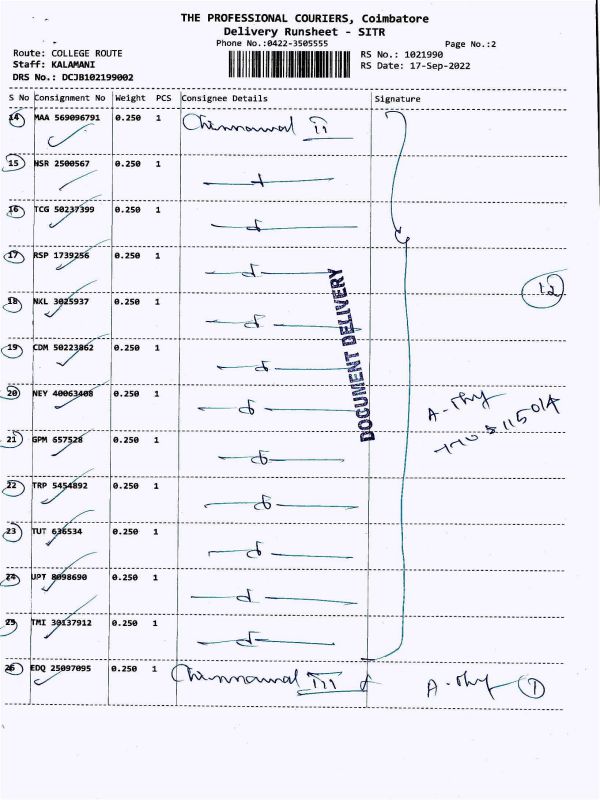 THE PROFESSIONAL COURIERS, Coimbatore
Delivery Runsheet - SITR
Phone No.:0422-3505555
Page No.:2
Route: COLLEGE ROUTE
RS No.: 1021990
Staff: KALAMANI
RS Date: 17-Sep-2022
DRS No.: DCJB102199002
S No Consignment No Weight PCS Consignee Details Signature
14 MAA 569096791 0.250 1 II
15 NSR 2500567 0.250 1
16 TCG 50237399 0.250 1
17 RSP 1739256 0.250 1
18 NXL 3025937 0.250 1
12
19 CDM 50223862 0.250 1
20 NEY 40063408 0.250 1
21 GPM 657528 0.250 1
22 TRP 5454892 0.250 1
23 TUT 636534 0.250 1
24 UPT 8098690 0.250 1
25 TMI 30137912 0.250 1
26 EDQ 25097095 0.250 1 III 1
DOCUMENT DELIVERY